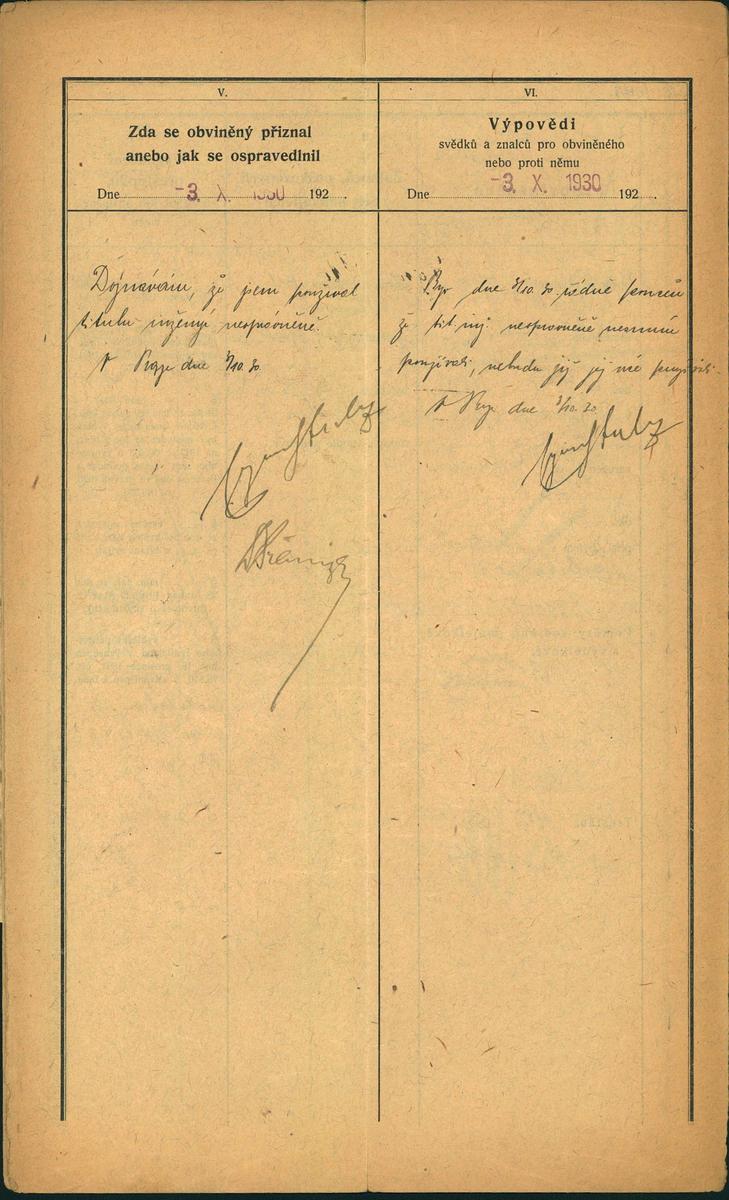 V.
Zda se obviněný přiznal
anebo jak se ospravedlnil
Dne -3. X. 1930 192
, že jsem používal
titulu neoprávněně.
V dne 3/10. 30.
VI.
Výpovědi
svědků a znalců pro obviněného
nebo proti němu
Dne -3. X. 1930 192
dne 3/10. 30. řádně
že tit. inž. neoprávněně nesmím
používati, nebudu již jej
V dne 3/10. 30.